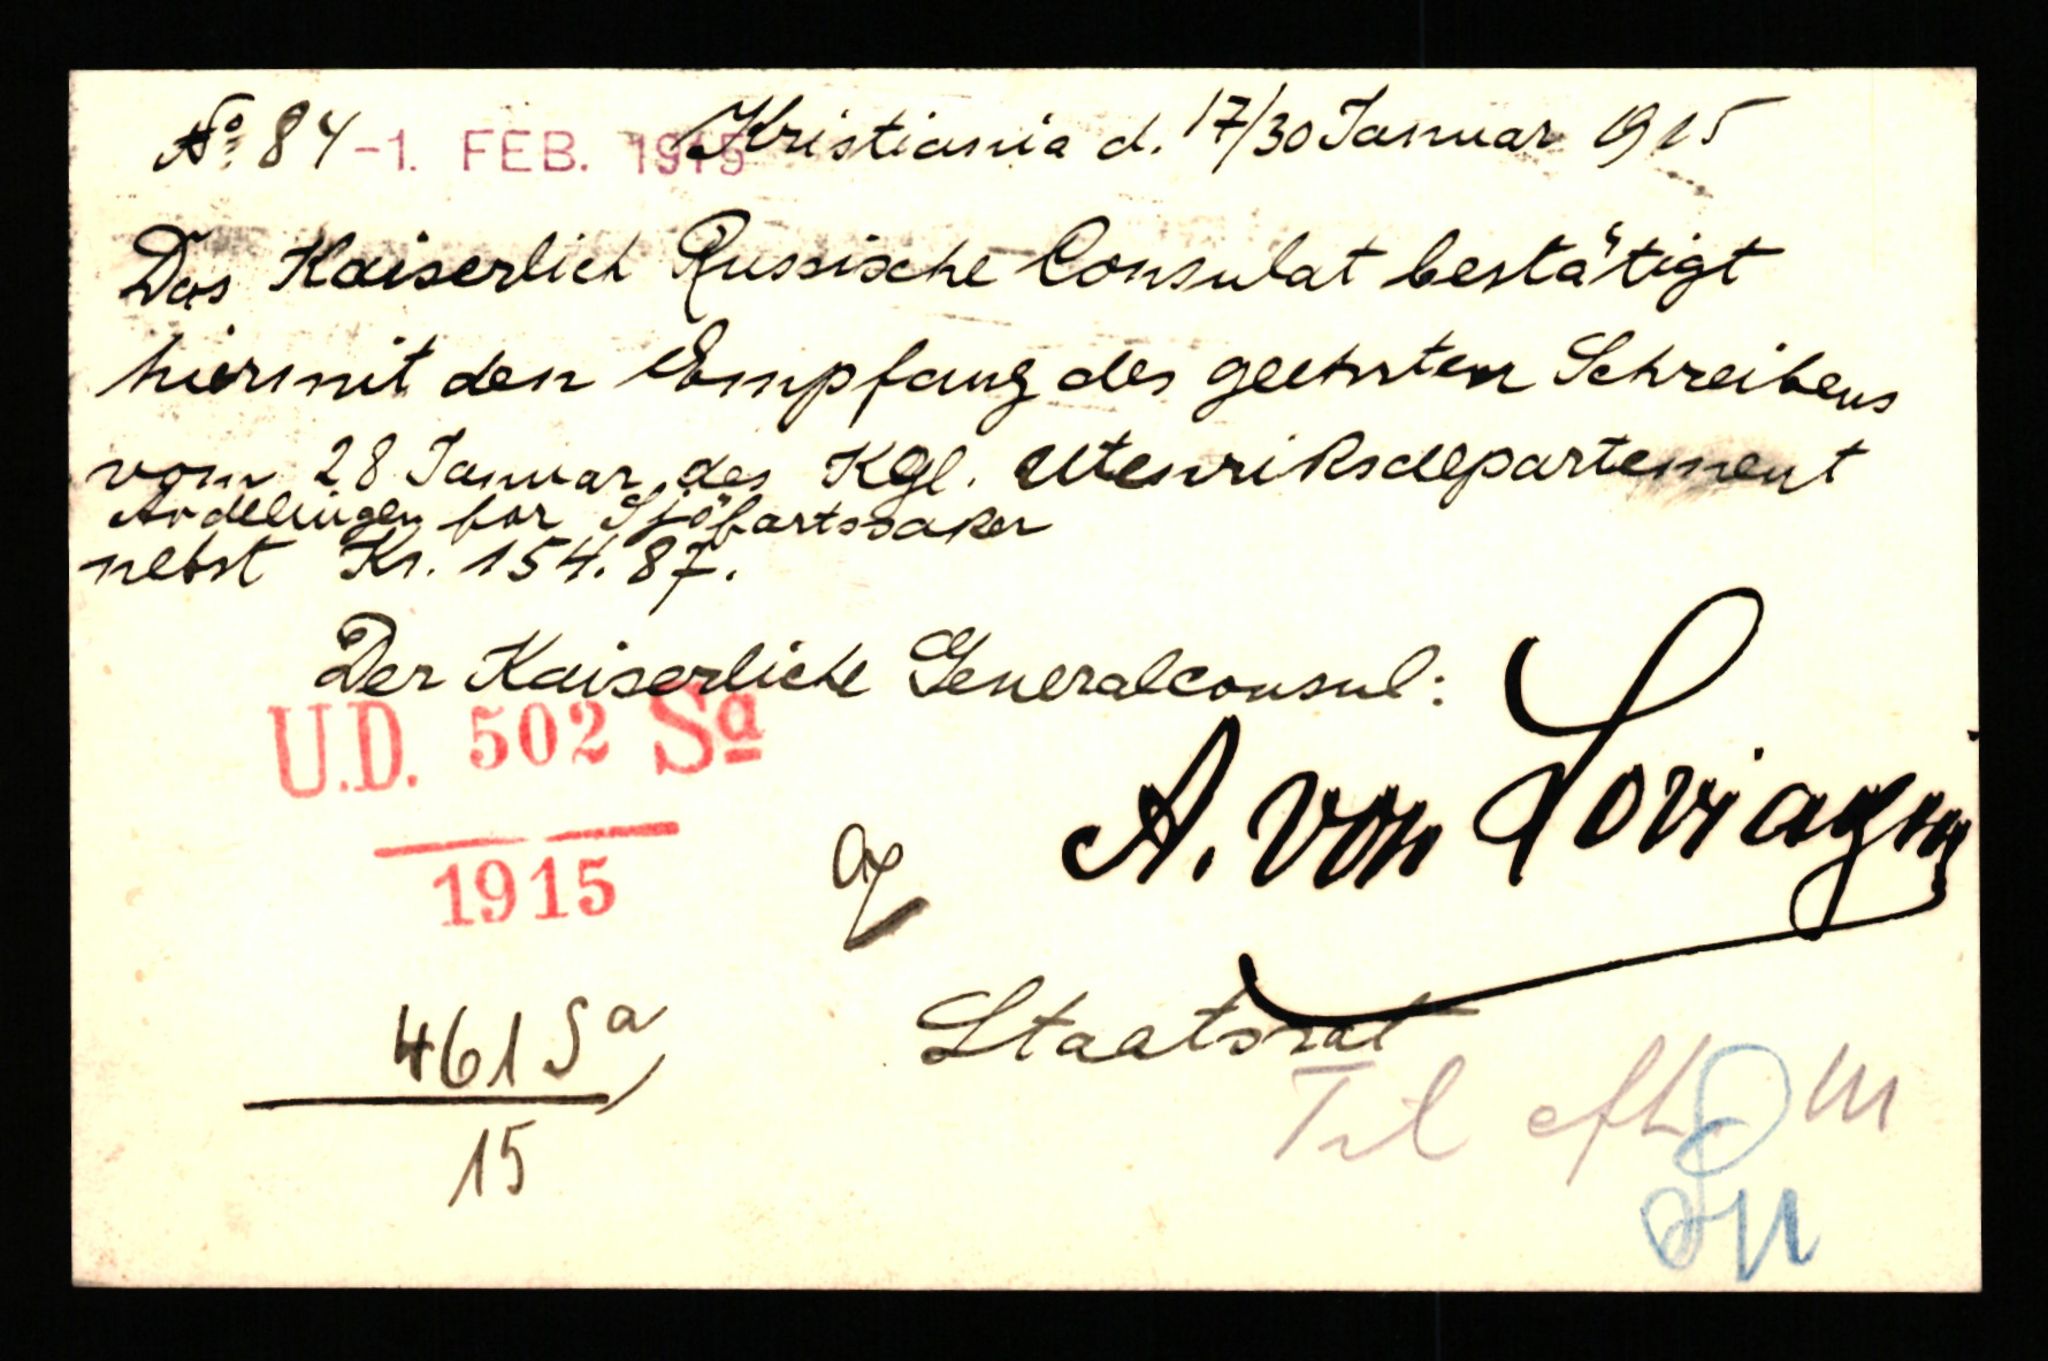 No. 84 -1. FEB. 1915 Kristiania d. 17/30 Januar 1915
Das Kaiserlich Russische Consulat bestätigt
hiermit den Empfang des geehrten Schreibens
vom 28 Januar des Kgl. Utenriksdepartement
Avdelingen for Sjöfartssaker
nebst Kr. 154.87.
Der Kaiserliche Generalconsul:
U.D. 502 Sa
1915
A. von Loviagin
Staatsrat
461 Sa
15
Til efth.